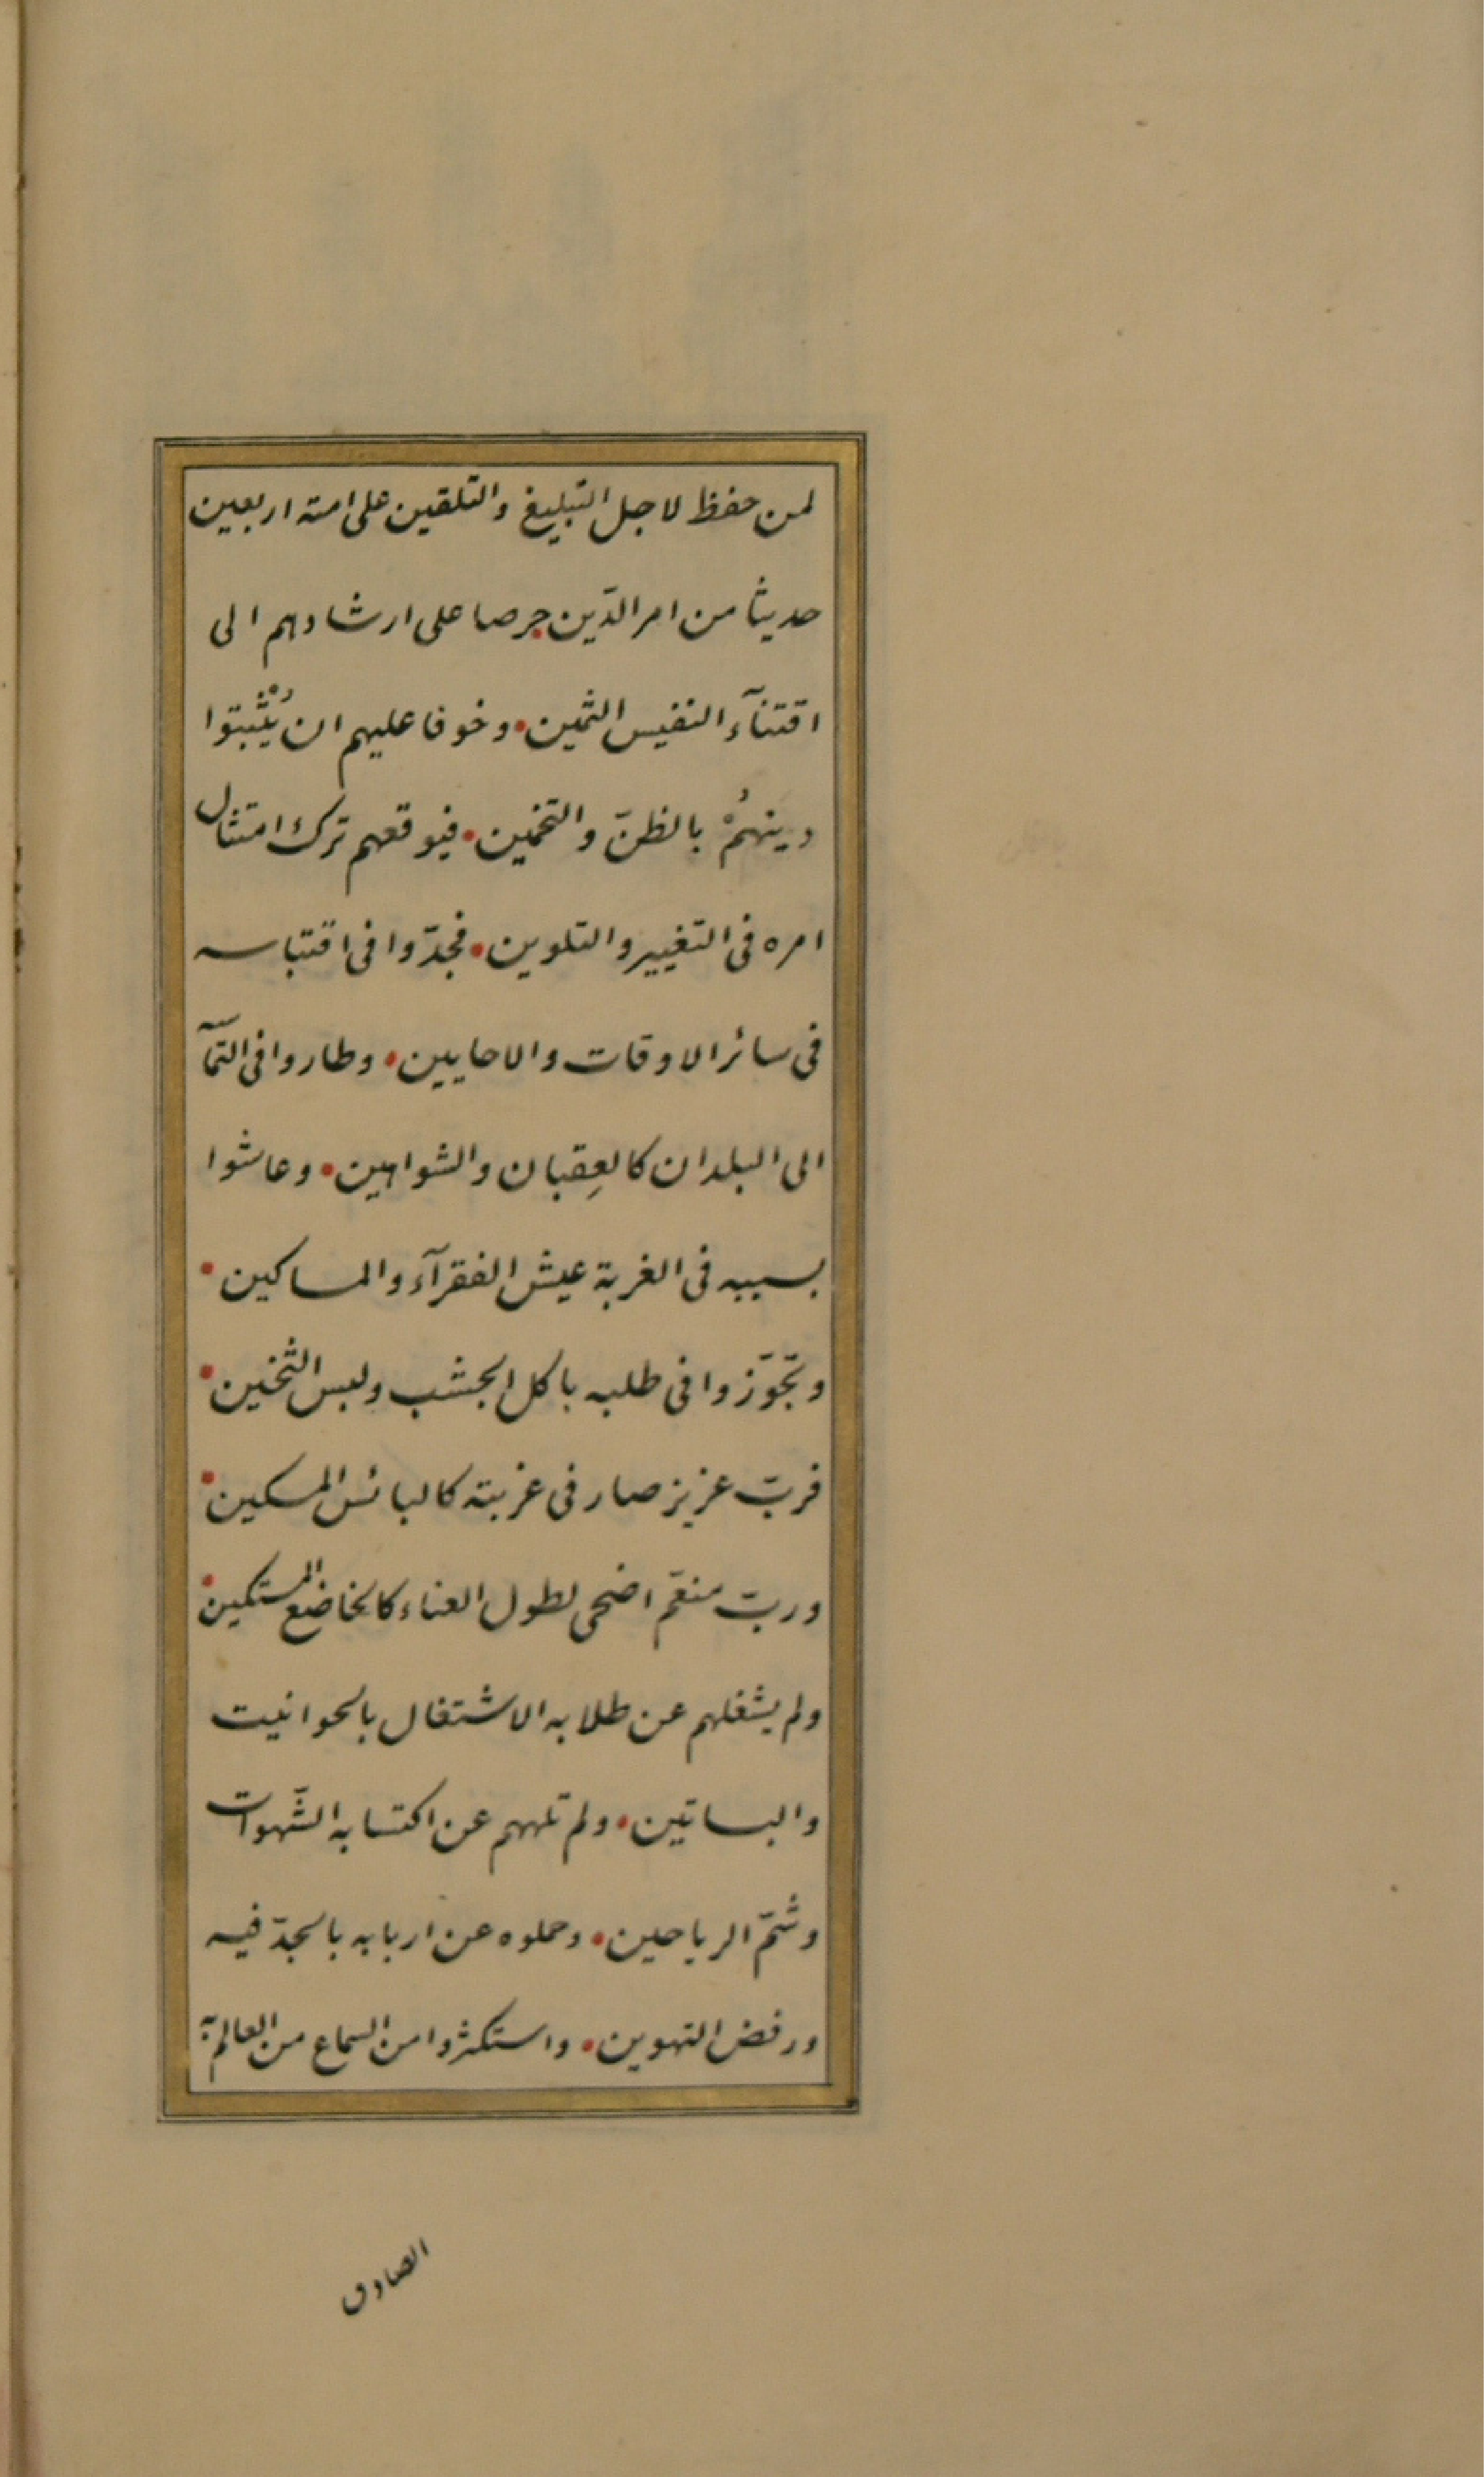 لمن حفظ لاجل التبليغ والتلقين على امته اربعين
حديثا من امر الدّين حرصا على ارشادهم الى
اقتنآء النفيس الثمين • وخوفا عليهم ان يُثْبتوا
دينهُمْ بالظنّ والتخمين • فيوقعهم ترك امتثال
امره فى التغيير والتلوين • فجدّوا فى اقتباسه
فى سائر الاوقات والاحايين • وطاروا فى
الى البلدان كالعِقبان والشواهين • وعاشوا
بسببه فى الغربة عيش الفقرآء والمساكين •
وتجوّزوا فى طلبه باكل الجشب ولبس الثخين •
فربّ عزيز صار فى غربته كالبائس المسكين •
وربّ منعّم اضحى لطول العناء كالخاضع المستكين •
ولم يشغلهم عن طلابه الاشتغال بالحوانيت
والبساتين • ولم تلههم عن اكتسابه الشّهوات
وشمّ الرياحين • وحملوه عن اربابه بالجدّ فيه
ورفض التهوين • واستكثروا من السماع من العالم
الصادق